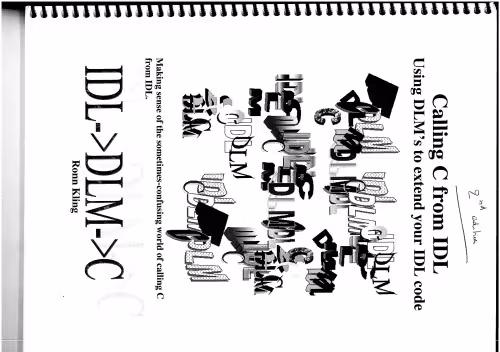 Calling C from IDL
Using DLM's to extend your IDL code
2nd edition
Making sense of the sometimes-confusing world of calling C
from IDL.
IDL->DLM->C
Ronn Kling